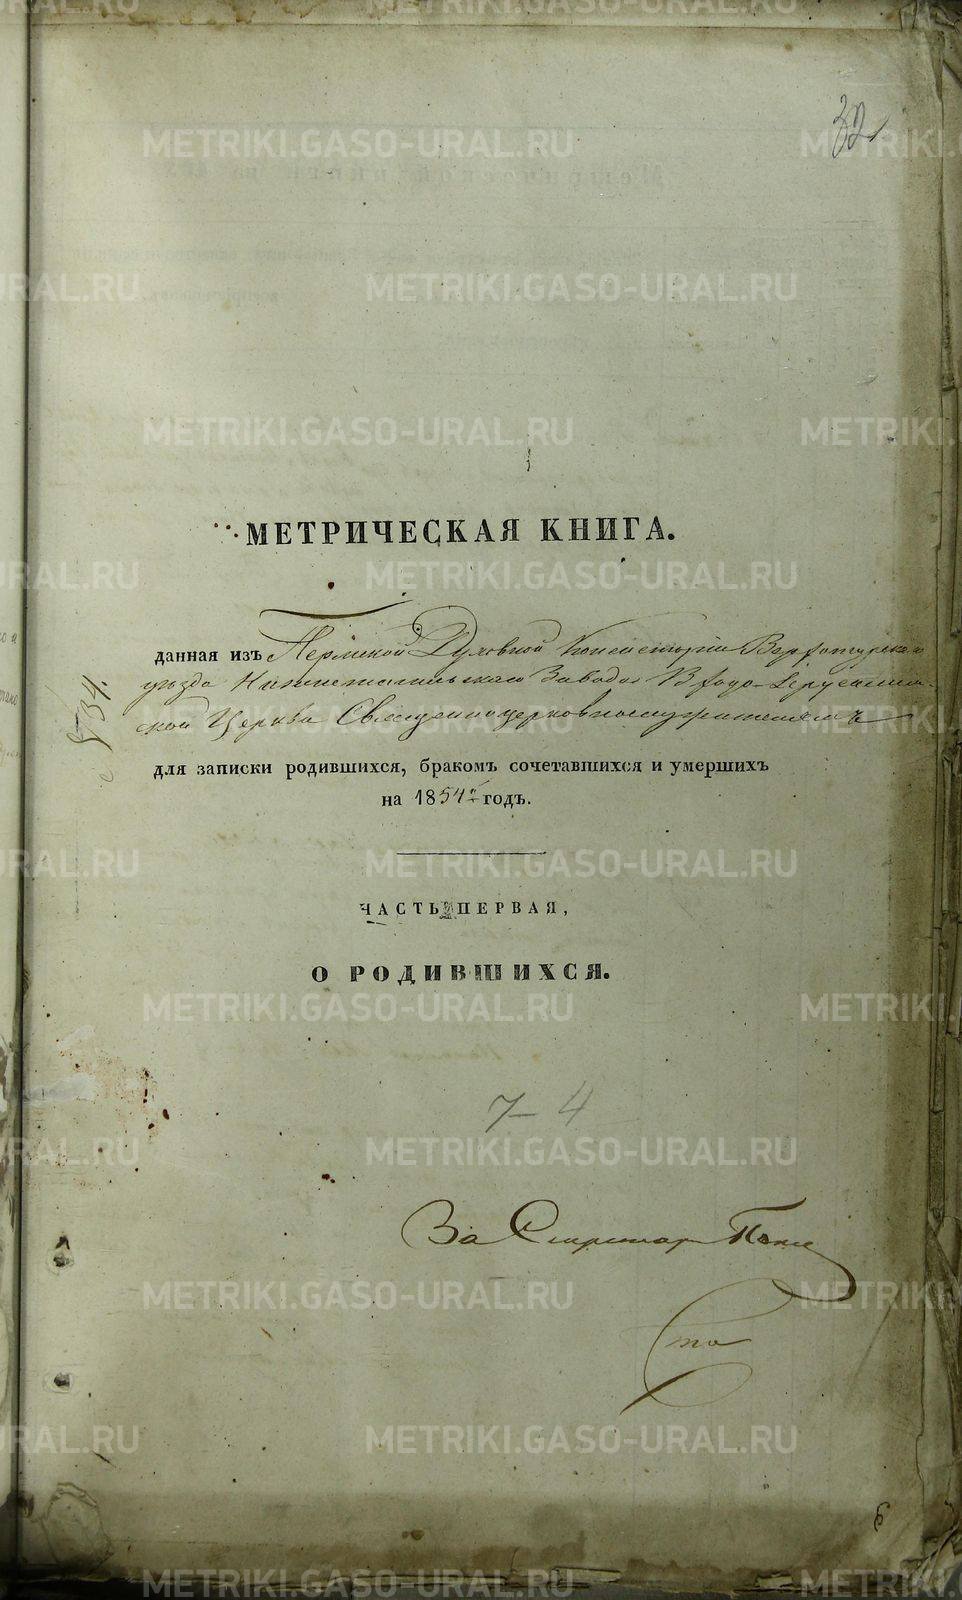 32
МЕТРИЧЕСКАЯ КНИГА.
данная изъ Пермской Духовной Консисторіи Верхотурскаго
уѣзда Нижнетагильскаго Завода Входо-Іерусалим-
ской Церкви Священноцерковнослужителямъ
для записки родившихся, бракомъ сочетавшихся и умершихъ
на 1854й годъ.
ЧАСТЬ ПЕРВАЯ,
О РОДИВШИХСЯ.
7-4
За Секретаря
Сто
6
с 834.
METRIKI.GASO-URAL.RU